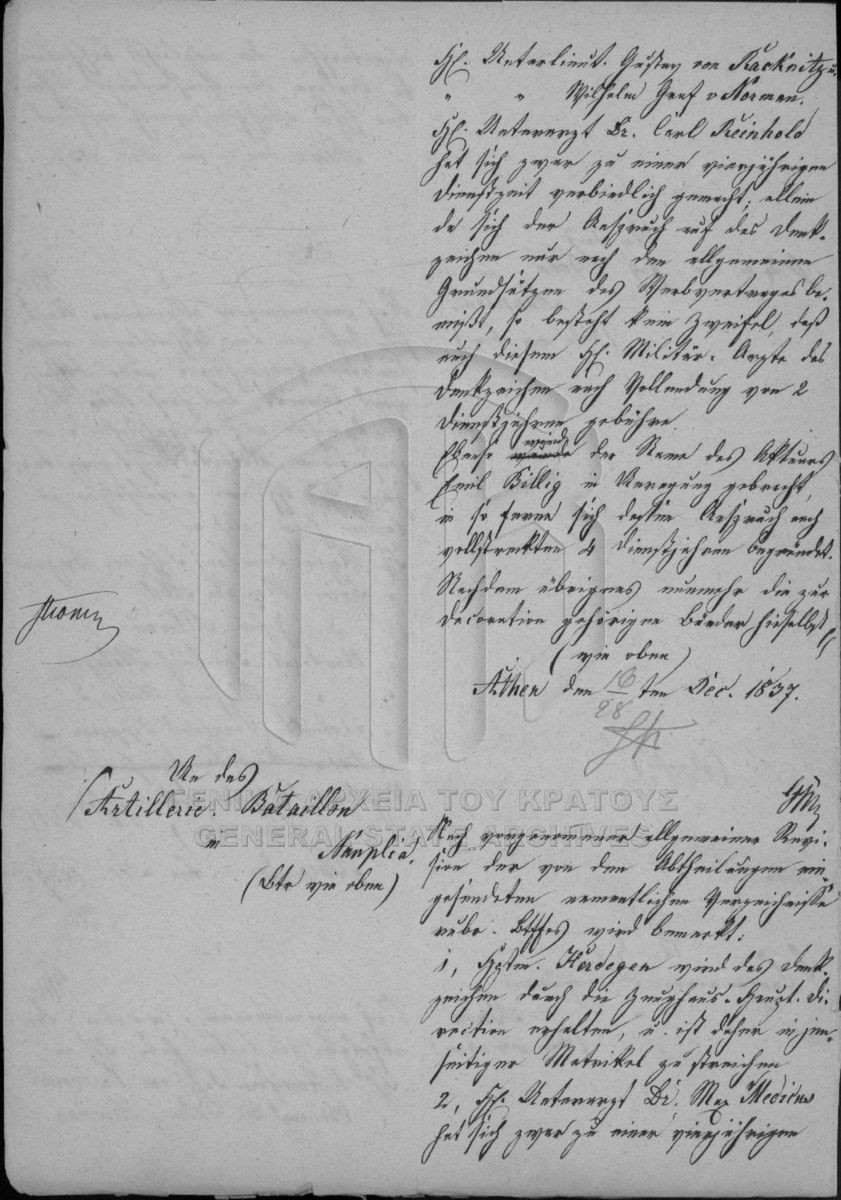 H. Unterlieut. Gustav von Racknitz u.
" " Wilhelm Graf v Norman.
H. Unterarzt Dr. Carl Reinhold
hat sich zwar zu einer vierjährigen
Dienstzeit verbindlich gemacht; allein
da sich der Anspruch auf das Denk-
zeichen nur nach den allgemeinen
Grundsätzen des Werbvertrages be-
mißt, so besteht kein Zweifel, daß
auch diesem H. Militär-Arzte das
Denkzeichen nach Vollendung von 2
Dienstjahren gebühre.
Ebenso wird der Name des Akteurs
Emil Billig in Anregung gebracht,
in so ferne sich dessen Anspruch nach
vollstreckten 4 Dienstjahren begründet.
Nachdem übrigens nunmehr die zur
Decoration gehörigen Bänder hieselbst
(wie oben)
Athen den 16/28 ten Dec. 1837.
An das
Artillerie-Bataillon
in
Nauplia.
(Btr wie oben)
Nach vorgenommener allgemeiner Revi-
sion der von den Abtheilungen ein-
gesendeten namentlichen Verzeichnisse
rubr. Btffes wird bemerkt:
1, Hptm. Herdegen wird das Denk-
zeichen durch die Zeughaus-Haupt-Di-
rection erhalten, u. ist daher in jen-
seitiger Matrikel zu streichen
2, H. Unterarzt Dr. Max Medicus
hat sich zwar zu einer vierjährigen
ΓΕΝΙΚΑ ΑΡΧΕΙΑ ΤΟΥ ΚΡΑΤΟΥΣ
GENERAL STATE ARCHIVES